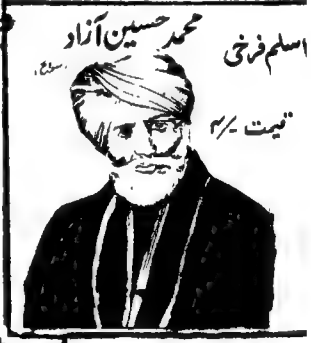 محمد حسین آزاد
(سوانح)
اسلم فرخی
قیمت ۴/-